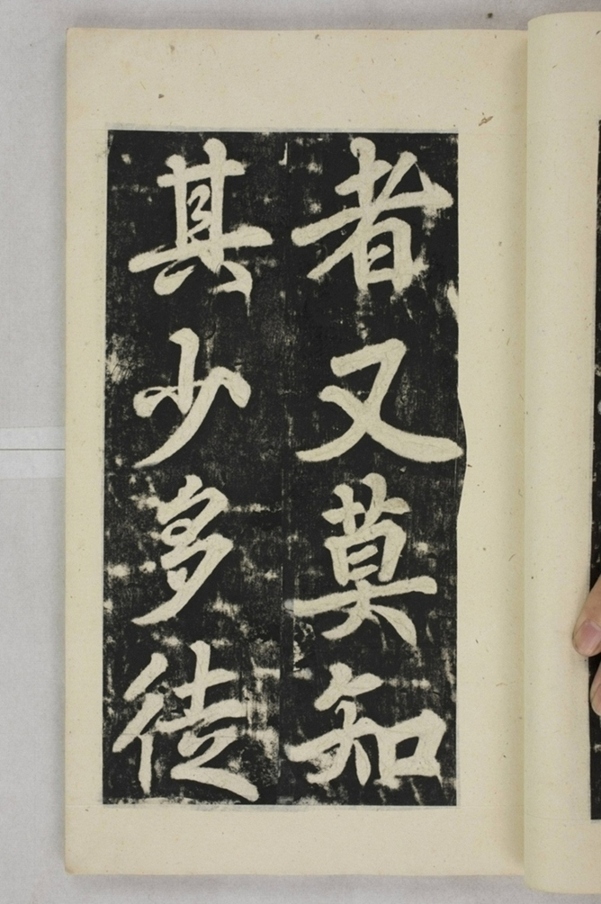 者又莫知
其少多徒